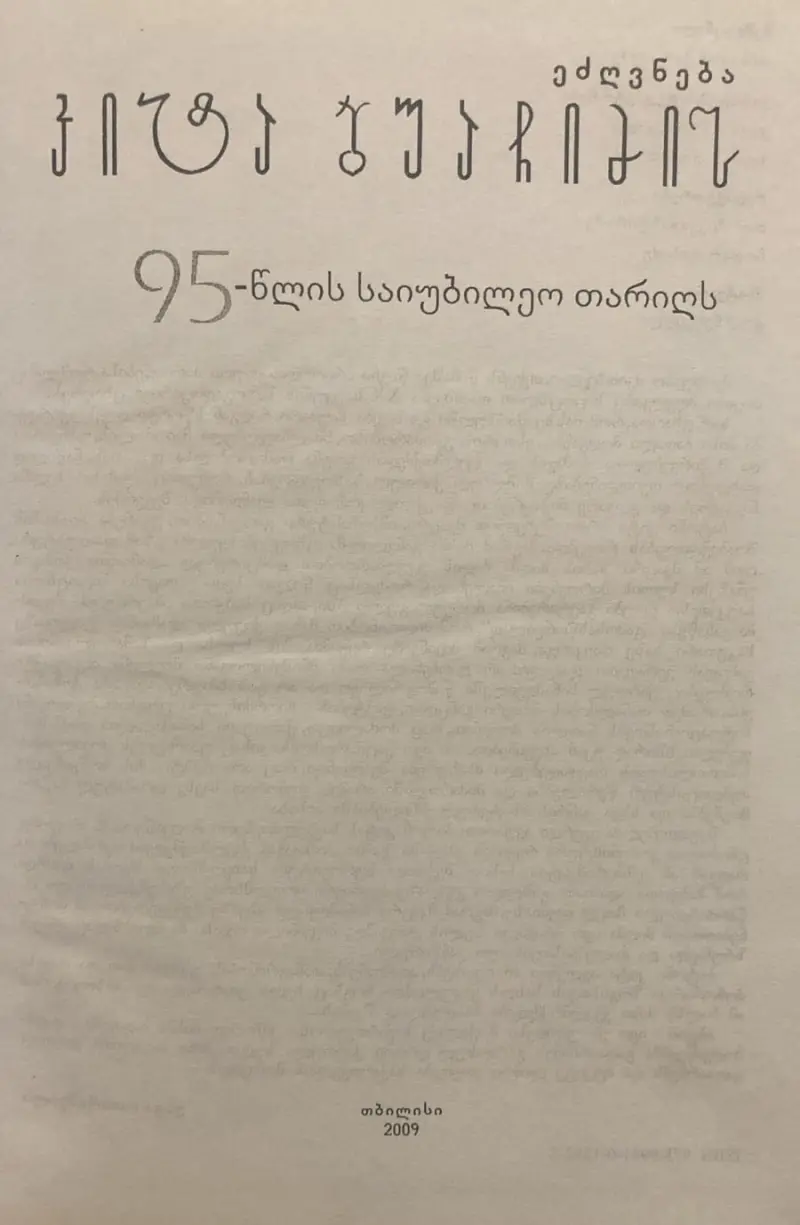 ეძღვნება
კიტა ბუაჩიძის
95-წლის საიუბილეო თარიღს
თბილისი
2009